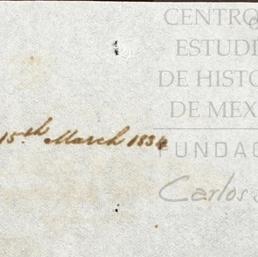 CENTRO
ESTUDI
DE HISTO
DE MEX
15th March 1834
FUNDAC
Carlos